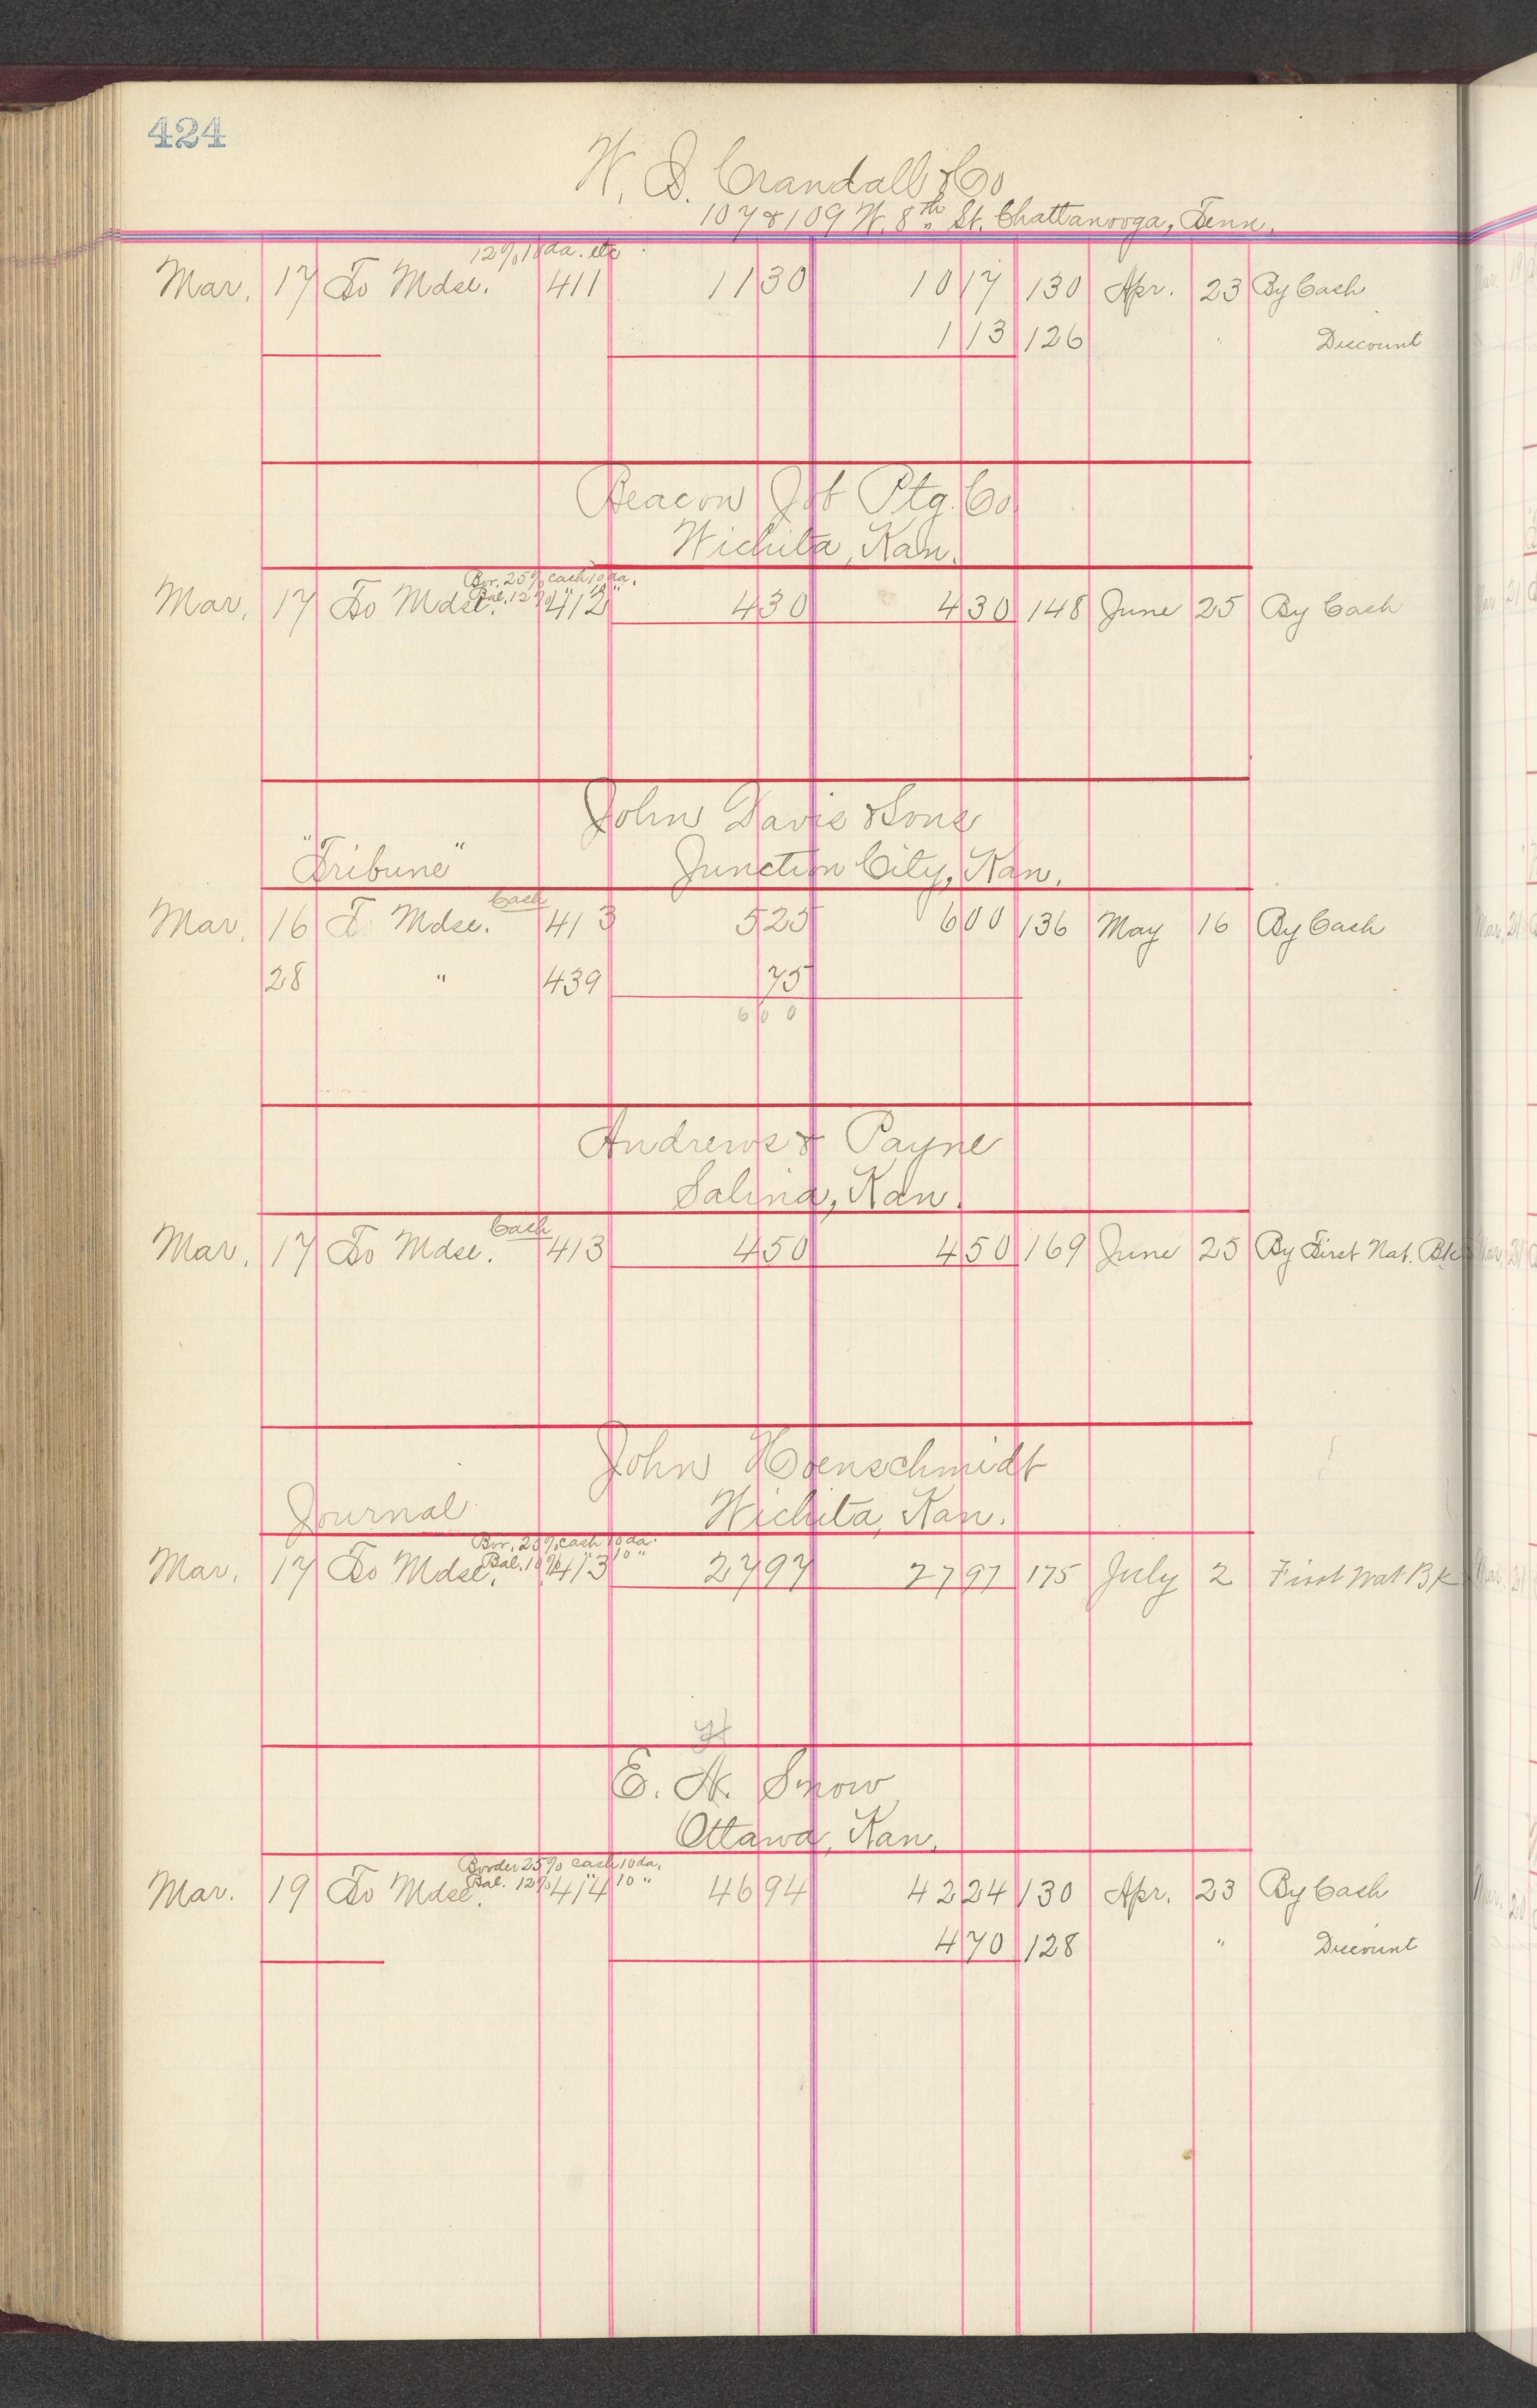 424
W. D. Crandall & Co
107 & 109 W. 8th St. Chattanooga, Tenn.
12% 10 da. etc
Mar. 17 To Mdse. 411 11 30 10 17 130 Apr. 23 By Cash
1 13 126 " Discount
Beacon Job Ptg. Co
Wichita, Kan.
Bor. 25% cash 10 da.
Bal. 12% " 10 "
Mar. 17 To Mdse. 412 4 30 4 30 148 June 25 By Cash
John Davis & Sons
"Tribune" Junction City, Kan.
Cash
Mar. 16 To Mdse. 413 5 25 6 00 136 May 16 By Cash
28 " 439 75
6 00
Andrews & Payne
Salina, Kan.
Cash
Mar. 17 To Mdse. 413 4 50 4 50 169 June 25 By First Nat. Bk
John Hoenschmidt
Journal Wichita, Kan.
Bor. 25% cash 10 da.
Bal. 10% " 10 "
Mar. 17 To Mdse. 413 27 97 27 97 175 July 2 First Nat Bk
H
E. H. Snow
Ottawa, Kan.
Border 25% cash 10 da.
Bal. 12% " 10 "
Mar. 19 To Mdse. 414 46 94 42 24 130 Apr. 23 By Cash
4 70 128 " Discount